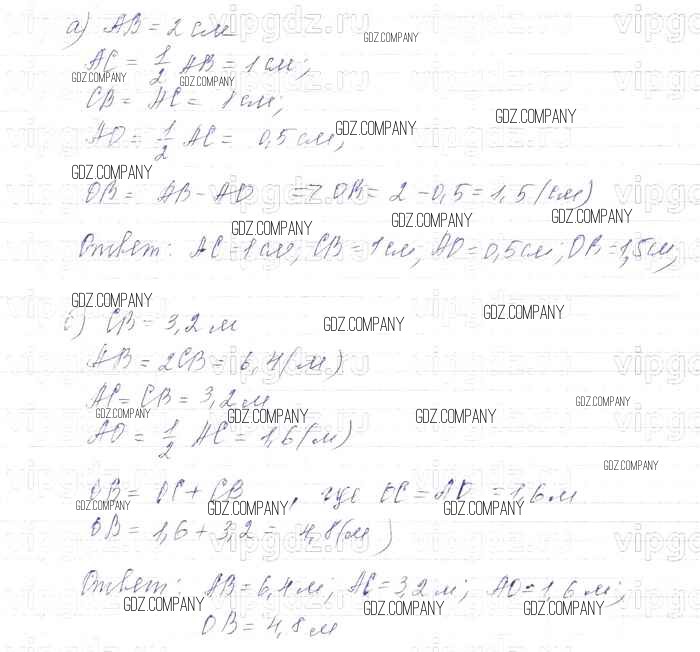 а) AB = 2 см
AC = 1/2 AB = 1 см;
CB = AC = 1 см;
AO = 1/2 AC = 0,5 см;
OB = AB - AO => OB = 2 - 0,5 = 1,5 (см)
Ответ: AC = 1 см, CB = 1 см, AO = 0,5 см, OB = 1,5 см,
б) CB = 3,2 м
AB = 2CB = 6,4 (м)
AC = CB = 3,2 м
AO = 1/2 AC = 1,6 (м)
OB = OC + CB, где OC = AO = 1,6 м
OB = 1,6 + 3,2 = 4,8 (м)
Ответ: AB = 6,4 м, AC = 3,2 м; AO = 1,6 м;
OB = 4,8 м